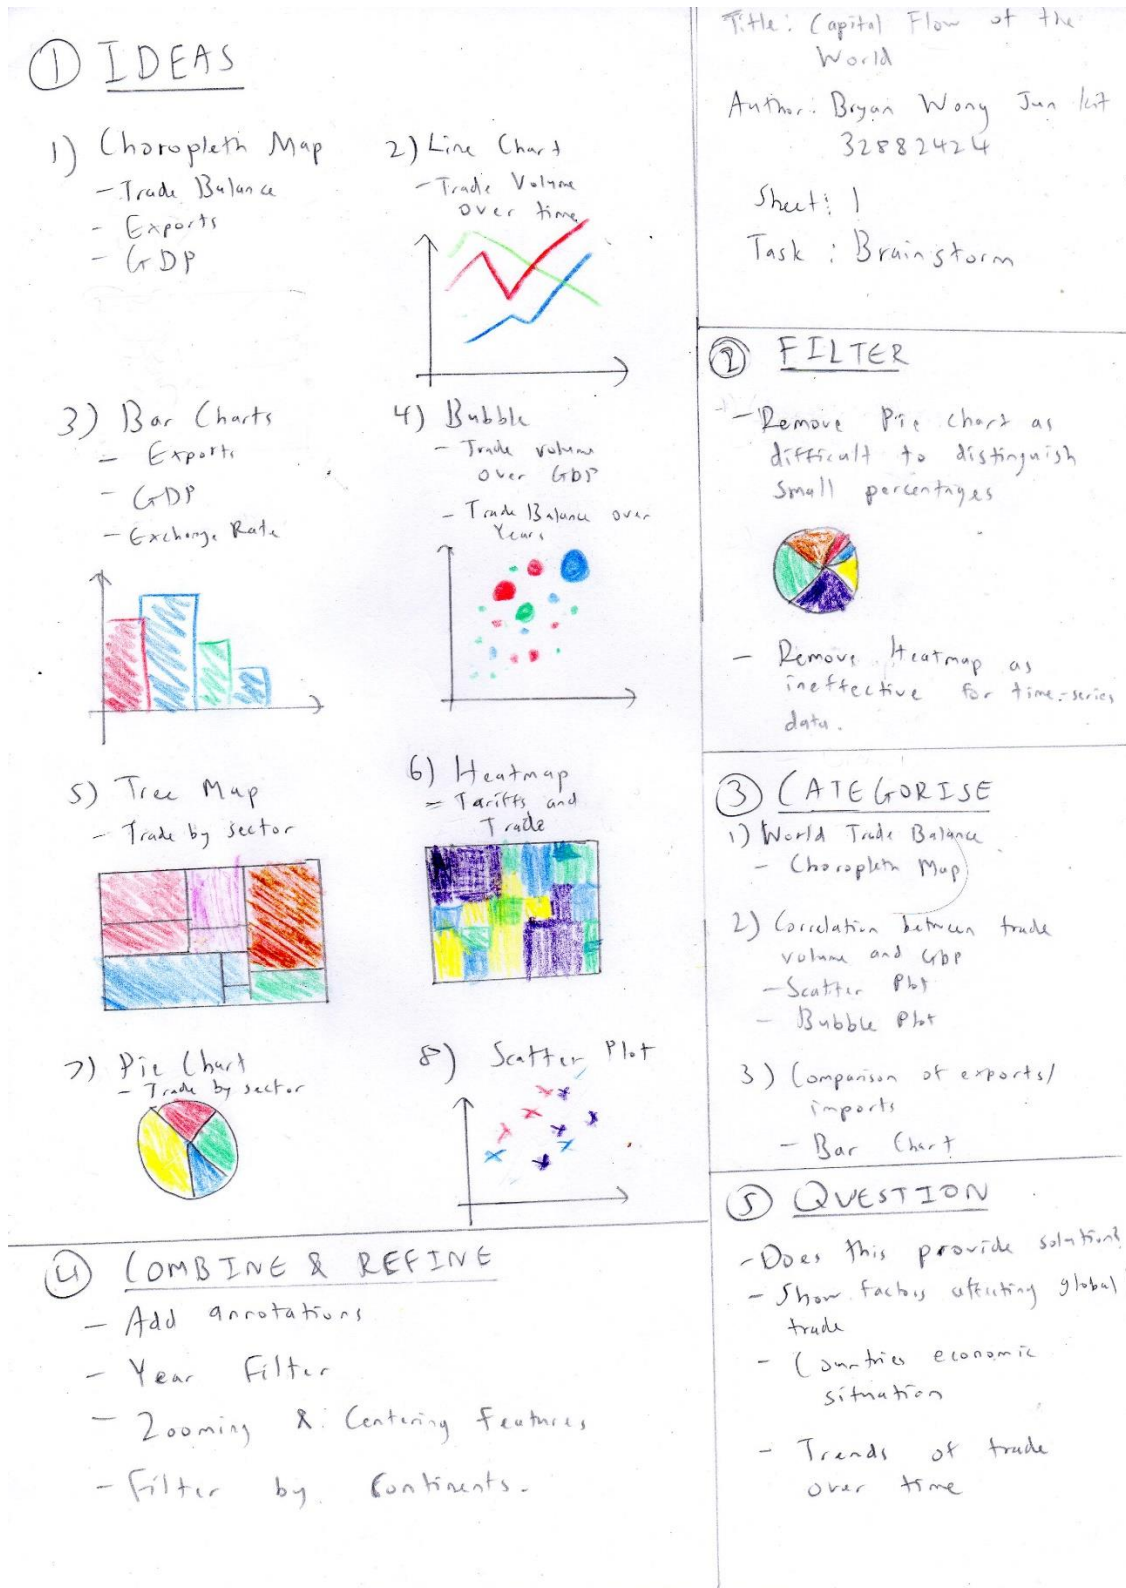 ① IDEAS
1) Choropleth Map
- Trade Balance
- Exports
- GDP
2) Line Chart
- Trade Volume
over time
3) Bar Charts
- Exports
- GDP
- Exchange Rate
4) Bubble
- Trade volume
over GDP
- Trade Balance over
Years
5) Tree Map
- Trade by sector
6) Heatmap
- Tariffs and
Trade
7) Pie Chart
- Trade by sector
8) Scatter Plot
④ COMBINE & REFINE
- Add annotations
- Year Filter
- Zooming & Centering Features
- Filter by Continents.
Title: Capital Flow of the
World
Author: Bryan Wong Jun Kit
32882424
Sheet: 1
Task : Brainstorm
② FILTER
- Remove Pie chart as
difficult to distinguish
small percentages
- Remove Heatmap as
ineffective for time-series
data.
③ CATEGORISE
1) World Trade Balance
- Choropleth Map
2) Correlation between trade
volume and GDP
- Scatter Plot
- Bubble Plot
3) Comparison of exports/
imports
- Bar Chart
⑤ QUESTION
- Does this provide solution?
- Show factors affecting global
trade
- Countries economic
situation
- Trends of trade
over time